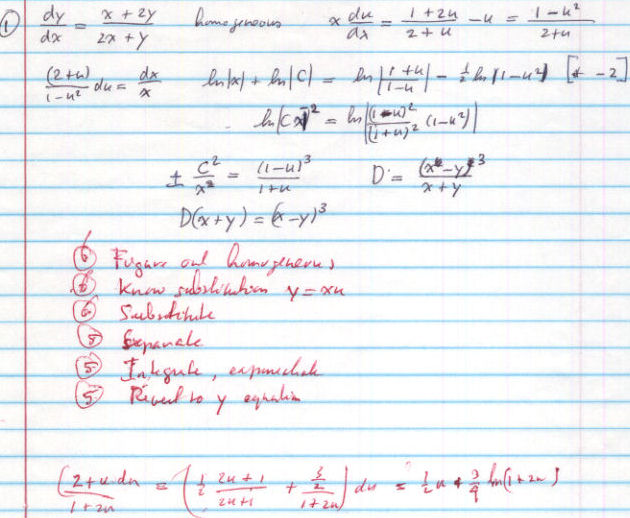 ① dy/dx = (x + 2y)/(2x + y) homogeneous x du/dx = (1 + 2u)/(2 + u) - u = (1 - u²)/(2 + u)
(2+u)/(1-u²) du = dx/x ln|x| + ln|C| = ln|(1+u)/(1-u)| - ½ ln|1-u²| [* -2]
ln|Cx|⁻² = ln|(1-u)²/(1+u)² (1-u²)|
± C²/x² = (1-u)³/(1+u) D = (x-y)³/(x+y)
D(x+y) = (x-y)³
⑥ Figure out homogeneous
Know substitution y = xu
⑥ Substitute
Separate
⑤ Integrate, exponentiate
⑤ Revert to y equation
(2+u du)/(1+2u) = (½ (2u+1)/(2u+1) + (3/2)/(1+2u)) du = ½u + ¾ ln(1+2u)